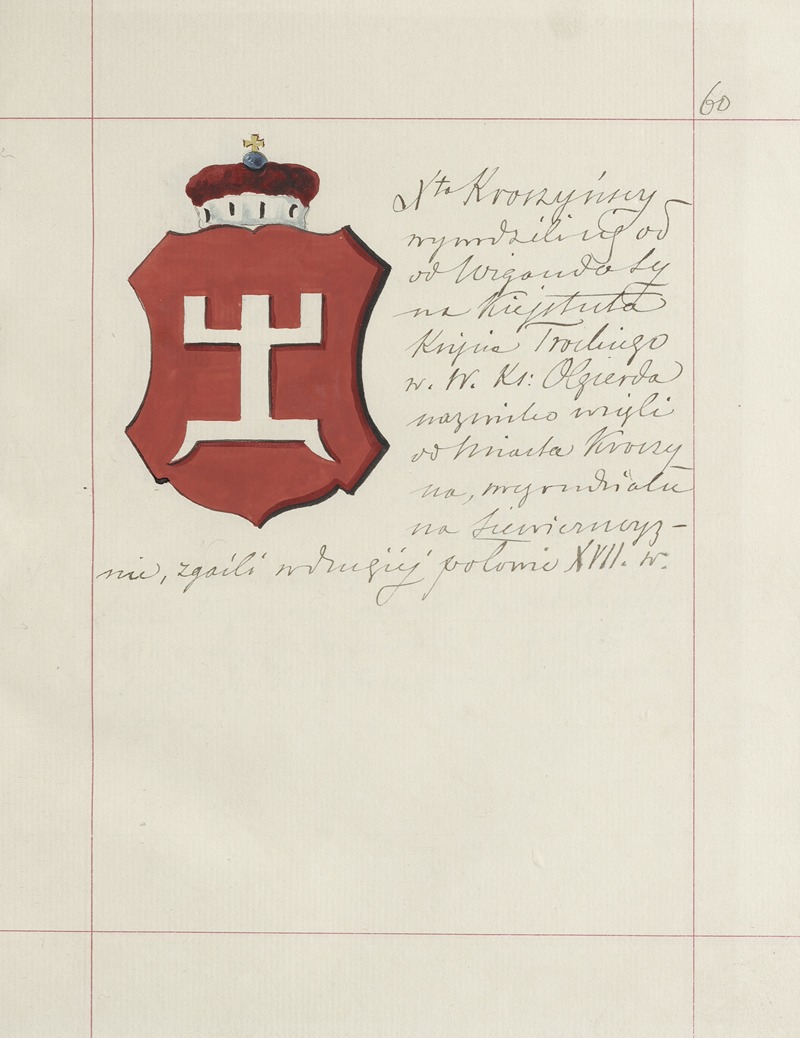 60
Xta Kroszyńscy
wywodzili się od
od Wiganda Sy
na Kiejstuta
Księcia Trockiego
w. W. Ks: Olgierda
nazwisko wzięli
od Miasta Kroszy
na, wygrudziału
na Siewierszczyz-
nie, zgaśli w drugiéj połowie XVII. w.